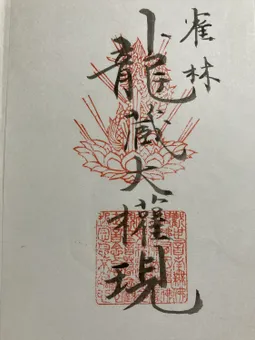 雀林
龍藏大權現